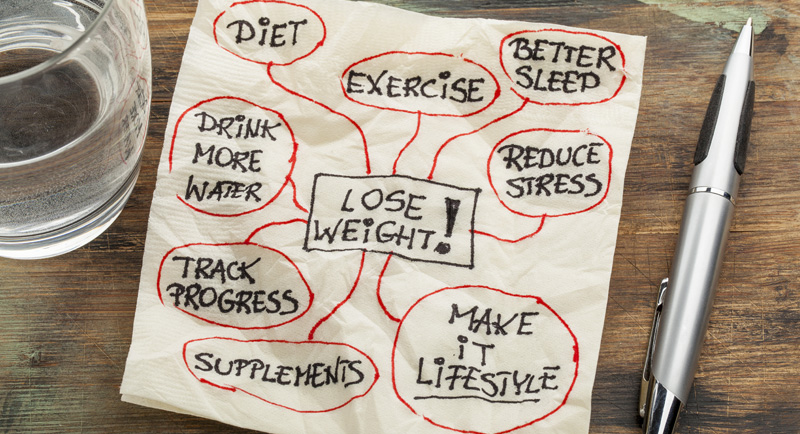 DIET
EXERCISE
BETTER
SLEEP
DRINK
MORE
WATER
REDUCE
STRESS
LOSE
WEIGHT!
TRACK
PROGRESS
SUPPLEMENTS
MAKE
IT
LIFESTYLE